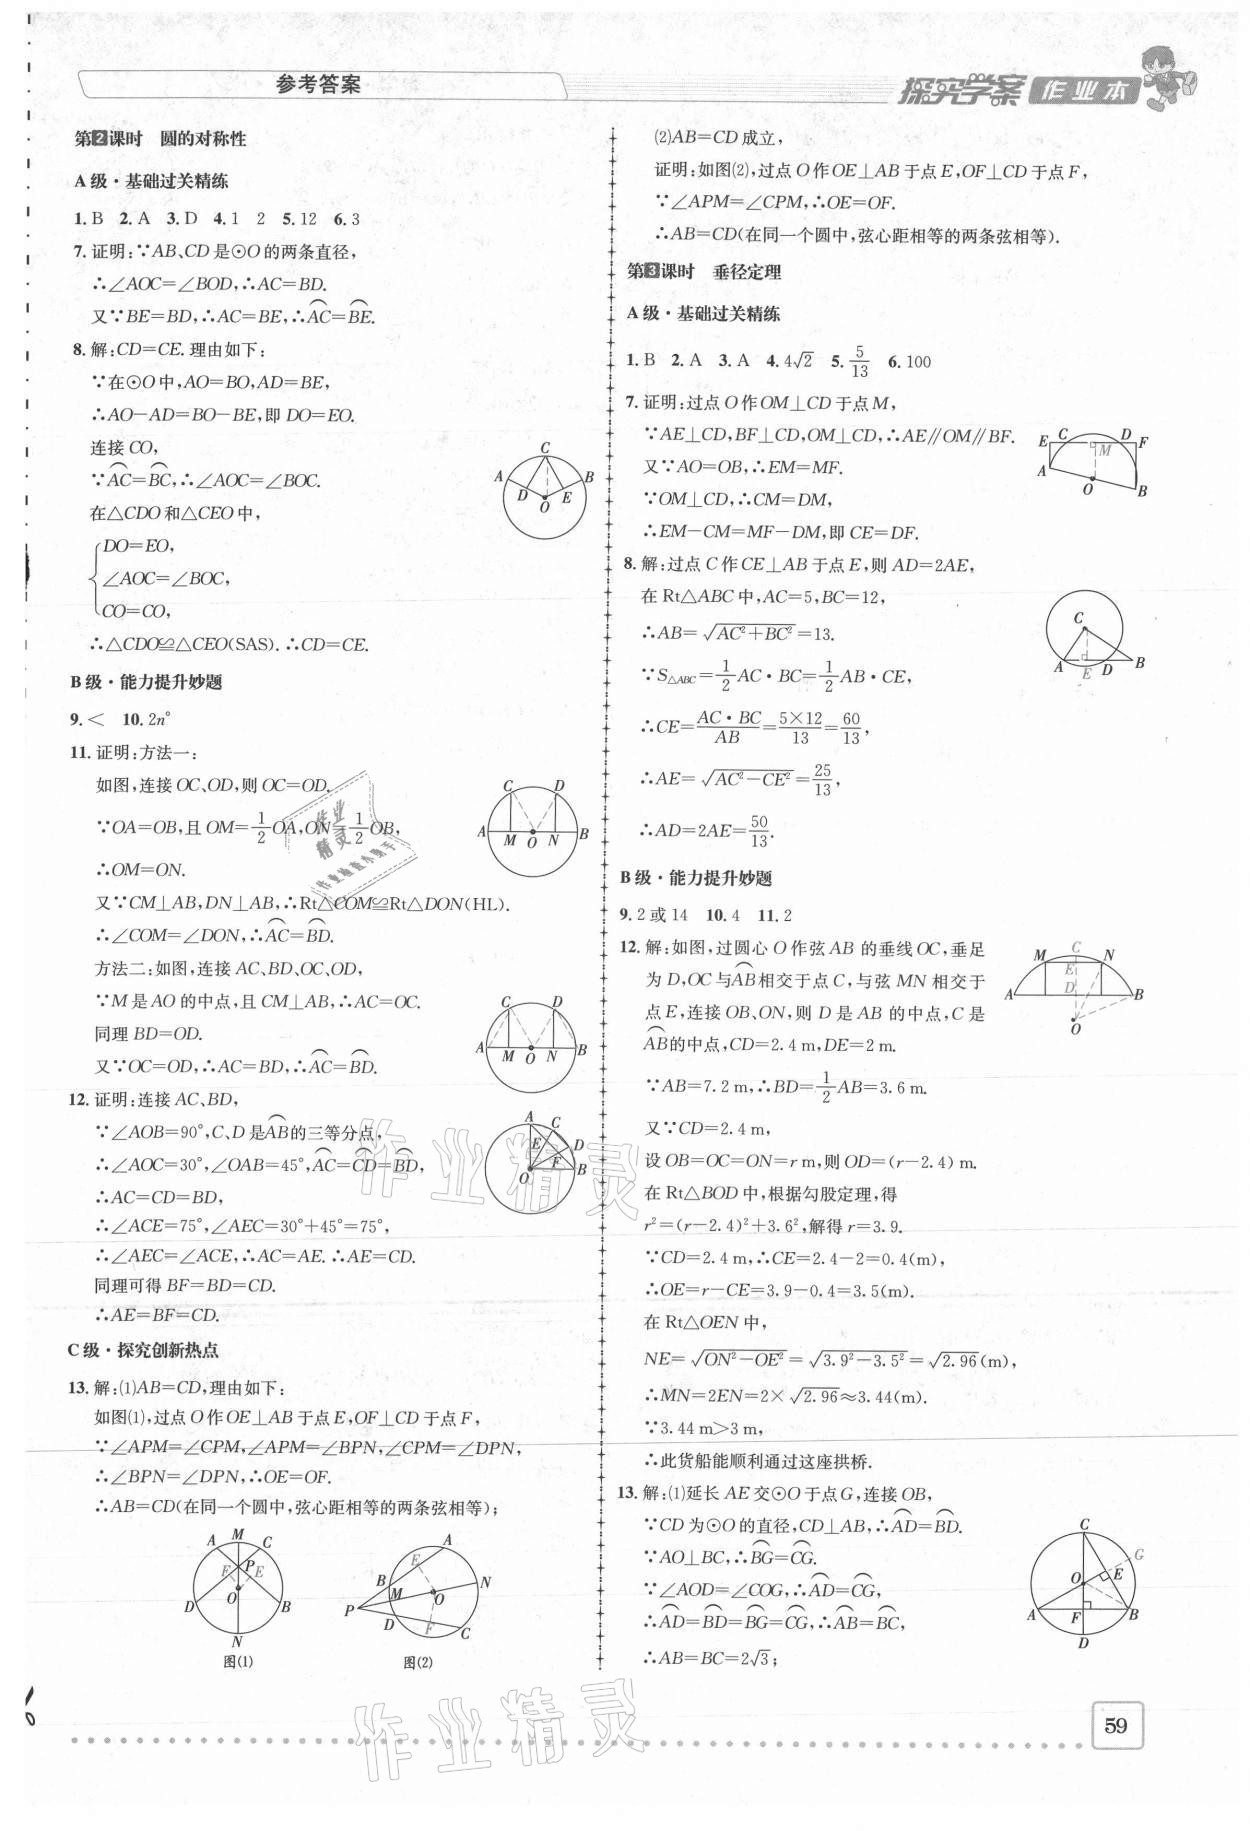 参考答案
探究学案 作业本
第2课时 圆的对称性
A级·基础过关精练
1.B 2.A 3.D 4.1 2 5.12 6.3
7.证明:∵AB、CD是⊙O的两条直径,
∴∠AOC=∠BOD,∴AC=BD.
又∵BE=BD,∴AC=BE,∴⌒AC=⌒BE.
8.解:CD=CE.理由如下:
∵在⊙O中,AO=BO,AD=BE,
∴AO-AD=BO-BE,即DO=EO.
连接CO,
∵⌒AC=⌒BC,∴∠AOC=∠BOC.
在△CDO和△CEO中,
DO=EO,
∠AOC=∠BOC,
CO=CO,
∴△CDO≌△CEO(SAS).∴CD=CE.
A C B D E O
B级·能力提升妙题
9.< 10.2n°
11.证明:方法一:
如图,连接OC、OD,则OC=OD.
∵OA=OB,且OM=1/2OA,ON=1/2OB,
∴OM=ON.
又∵CM⊥AB,DN⊥AB,∴Rt△COM≌Rt△DON(HL).
∴∠COM=∠DON,∴⌒AC=⌒BD.
C D A M O N B
方法二:如图,连接AC、BD、OC、OD,
∵M是AO的中点,且CM⊥AB,∴AC=OC.
同理BD=OD.
又∵OC=OD,∴AC=BD,∴⌒AC=⌒BD.
C D A M O N B
12.证明:连接AC、BD,
∵∠AOB=90°,C、D是⌒AB的三等分点,
∴∠AOC=30°,∠OAB=45°,⌒AC=⌒CD=⌒BD,
∴AC=CD=BD,
∴∠ACE=75°,∠AEC=30°+45°=75°,
∴∠AEC=∠ACE,∴AC=AE.∴AE=CD.
同理可得BF=BD=CD.
∴AE=BF=CD.
A C D E F B O
C级·探究创新热点
13.解:(1)AB=CD,理由如下:
如图(1),过点O作OE⊥AB于点E,OF⊥CD于点F,
∵∠APM=∠CPM,∠APM=∠BPN,∠CPM=∠DPN,
∴∠BPN=∠DPN,∴OE=OF.
∴AB=CD(在同一个圆中,弦心距相等的两条弦相等);
A M C P F E O D B N
图(1)
A E B M N O P D F C
图(2)
(2)AB=CD成立,
证明:如图(2),过点O作OE⊥AB于点E,OF⊥CD于点F,
∵∠APM=∠CPM,∴OE=OF.
∴AB=CD(在同一个圆中,弦心距相等的两条弦相等).
第3课时 垂径定理
A级·基础过关精练
1.B 2.A 3.A 4.4√2 5.5/13 6.100
7.证明:过点O作OM⊥CD于点M,
∵AE⊥CD,BF⊥CD,OM⊥CD,∴AE∥OM∥BF.
又∵AO=OB,∴EM=MF.
∵OM⊥CD,∴CM=DM,
∴EM-CM=MF-DM,即CE=DF.
E C D F M A O B
8.解:过点C作CE⊥AB于点E,则AD=2AE,
在Rt△ABC中,AC=5,BC=12,
∴AB=√(AC²+BC²)=13.
∵S△ABC=1/2AC·BC=1/2AB·CE,
∴CE=AC·BC/AB=5×12/13=60/13,
∴AE=√(AC²-CE²)=25/13,
∴AD=2AE=50/13.
C A E D B
B级·能力提升妙题
9.2或14 10.4 11.2
12.解:如图,过圆心O作弦AB的垂线OC,垂足
为D,OC与⌒AB相交于点C,与弦MN相交于
点E,连接OB、ON,则D是AB的中点,C是
⌒AB的中点,CD=2.4 m,DE=2 m.
∵AB=7.2 m,∴BD=1/2AB=3.6 m.
又∵CD=2.4 m,
设OB=OC=ON=r m,则OD=(r-2.4) m.
在Rt△BOD中,根据勾股定理,得
r²=(r-2.4)²+3.6²,解得r=3.9.
∵CD=2.4 m,∴CE=2.4-2=0.4(m),
∴OE=r-CE=3.9-0.4=3.5(m).
在Rt△OEN中,
NE=√(ON²-OE²)=√(3.9²-3.5²)=√2.96(m),
∴MN=2EN=2×√2.96≈3.44(m).
∵3.44 m>3 m,
∴此货船能顺利通过这座拱桥.
M C N E A D B O
13.解:(1)延长AE交⊙O于点G,连接OB,
∵CD为⊙O的直径,CD⊥AB,∴⌒AD=⌒BD.
∵AO⊥BC,∴⌒BG=⌒CG.
∵∠AOD=∠COG,∴⌒AD=⌒CG,
∴⌒AD=⌒BD=⌒BG=⌒CG,∴⌒AB=⌒BC,
∴AB=BC=2√3;
C G O E A F B D
59
作业精灵
作业精灵
作业精灵